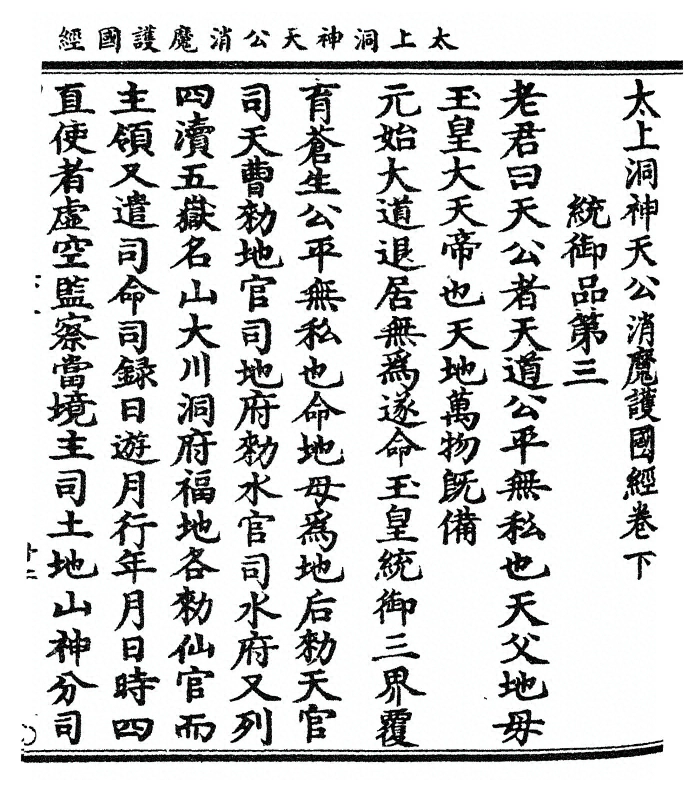 太上洞神天公消魔護國經
太上洞神天公消魔護國經卷下
統御品第三
老君曰天公者天道公平無私也天父地母
玉皇大天帝也天地萬物旣備
元始大道退居無爲遂命玉皇統御三界覆
育蒼生公平無私也命地母爲地后勑天官
司天曹勑地官司地府勑水官司水府又列
四瀆五嶽名山大川洞府福地各勑仙官而
主領又遣司命司録日遊月行年月日時四
直使者虛空監察當境主司土地山神分司